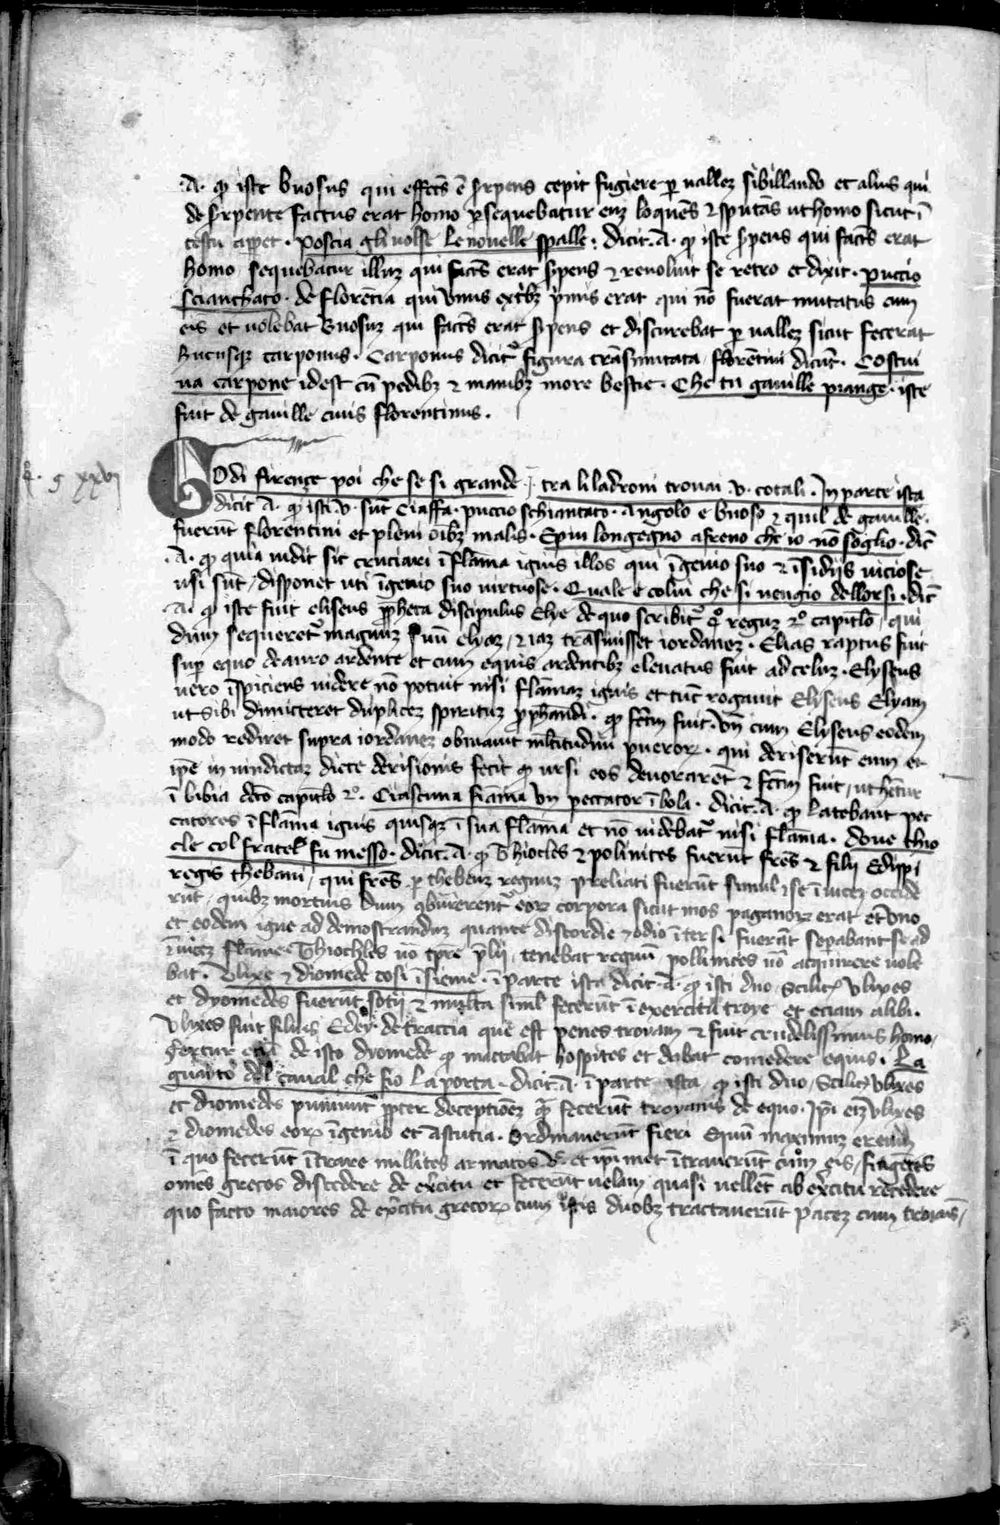 .A. ꝙ iste buosus qui effcts ē serpens cepit fugiere ꝑ uallez sibillando et alius qui
de serpente factus erat homo ꝑsequebatur euz loquēs ⁊ sputās ut homo sicut ī
testu apꝑet . Poscia gli uolse le nouelle spalle : dicit .A. ꝙ iste serpens qui facts erat
homo sequebatur illuz qui facts erat serpens ⁊ reuoluit se retro et dixit . puccio
scianchato . de florētia qui unus ex tribz pͥmis erat qui nō fuerat mutatus cum
eis et uolebat Buosuz qui facts erat serpens et discurebat ꝑ uallez sicut fecerat
hucusqz carponus . Carponus dicitᷣ figura trāsmutata / florētini dicūt . Costui
ua carpone idest cū pedibz ⁊ manibz more bestie . Che tu gauille piange . iste
fuit de gauille ciuis florentinus .
c. 9 xxvi
GOdi firenze poi che se si grande : tra li ladroni trouai .v. cotali . In parte ista
dicit A. ꝙ isti .v. sūt Ciaffa . puccio schiantato . Angolo e buoso ⁊ quil de gauille .
fuerūt florentini et pleni oībz malis . E piu longegno afreno che io nō soglio . dic̄
.A. ꝙ quia uidit sic cruciari ī flāma ignis illos qui īgenio suo ⁊ īsidijs uiciose
usi sūt / disponet uti īgenio suo uirtuose . Quale e colui che si uengio dellorsi . dic̄
A. ꝙ iste fuit eliseus ꝓpheta discipulus Elye de quo scribitᷣ qͦ reguz 2º capitl̄o / qui
dum sequeretᷣ magnuz suū elyaz / ⁊ iaz trāsiuisset iordanez . Elias raptus fuit
suꝑ equo de auro ardente et cum equis ardentibz eleuatus fuit ad celuz . Elyseus
uero īspiciens uidere nō potuit nisi flāmaz ignis et tūc rogauit Elyseus Elyam
ut sibi dimicteret duplicez spirituz ꝓphandi . ꝙ fctm fuit . Vn̄ cum Elyseus eodem
modo rediret supra iordanez obuiauit ml̄titudini pueroꝝ . qui deriserūt eum et
ip̄e in uindictaz dicte derisionis fecit ꝙ ursi eos deuorarēt ⁊ fctm fuit / ut hētur
ī bibia dc̄to capitl̄o 2º . Ciascuna fiāma un peccator ī bola . dicit .A. ꝙ latebant pec
catores ī flāma ignis quisqz ī sua flāma et nō uidebatᷣ nisi flāma . doue thio
cle col fratel fu messo . dicit .A. ꝙ Thiocles ⁊ polinites fuerūt frēs ⁊ filij Edippi
regis thebani / qui frēs ꝑ thebeuz regnuz preliati fuerūt simul ⁊ se ī uicez occide
rūt / quibz mortuis dum ꝯburerentᷣ eoꝝ corpora sicut mos paganoꝝ erat et uno
et eodem igne ad demostrandaz quante discordie ⁊ odio īter si fuerāt sepabant se ad
īuicez flāme Thiochles uō tpr̄e p̄lij / tenebat regnū / pollinices uō acquirere uole
bat . Ulixe ⁊ diomede cosi īsieme . ī parte ista dicit .A. ꝙ isti duo / scilicꝫ Vlixes
et dyomedes fuerūt sotij ⁊ multa siml̄ fecerūt ī exercitu troye et eciam alibi .
Vlixes fuit filius Eder de traccia que est penes troyam ⁊ fuit crudelissimus homo /
fertur etiā de isto dyomede ꝙ mactabat hospites et dabat comedere equis . La
guaito del caual che fio la porta . dicit .A. ī parte ista / ꝙ isti duo / scilicꝫ Vlixes
et diomedes puniuntᷣ ꝓpter deceptionez quā fecerūt troyanis de equo . Ip̄i eīz Vlixes
⁊ diomedes eoꝝ īgenio et astutia . Ordinauerūt fieri equū maximuz ereum
ī quo fecerūt ītrare millites armatos et ip̄i met ītrauerūt cum eis / fingētes
om̄es grecos discedere de excitu et fecerūt uelam quasi uellēt ab ex̄citu recedere
quo facto maiores de ex̄citu grecoꝝ cum istis duobz tractauerūt pacez cum troianis /